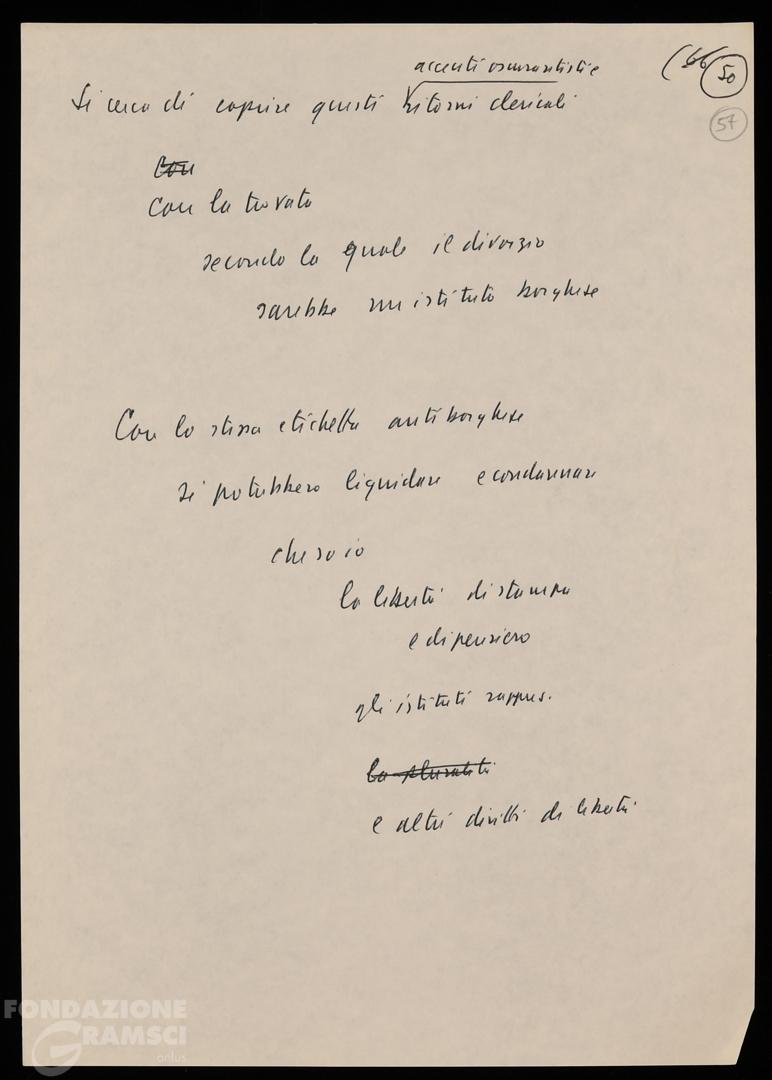 accenti oscurantisti e
(56
50
57
Si cerca di coprire questi ritorni clericali
Con
con la trovata
secondo la quale il divorzio
sarebbe un istituto borghese
Con la stessa etichetta antiborghese
si potrebbero liquidare e condannare
che so io
la libertà di stampa
e di pensiero
gli istituti rappres.
la pluralità
e altri diritti di libertà
FONDAZIONE
GRAMSCI
onlus